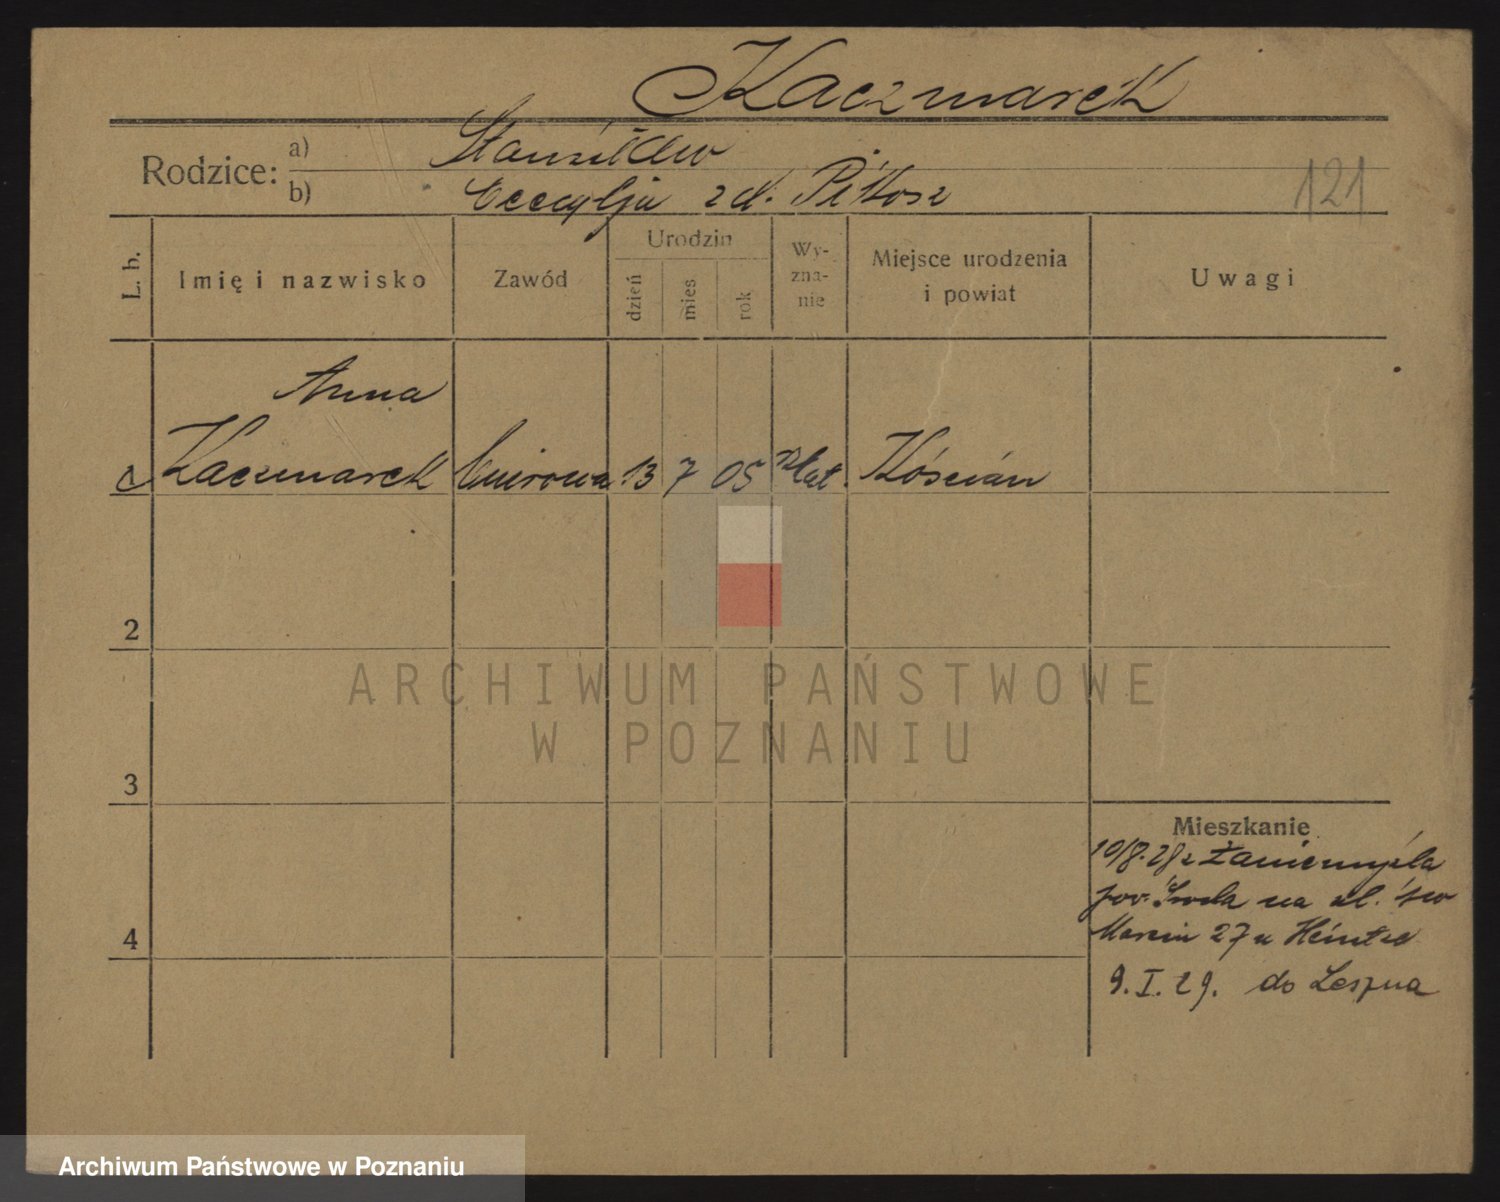 Kaczmarek
Rodzice:
a) Stanisław
b) Cecylja z d.
121
L. b.
Imię i nazwisko
Zawód
Urodzin
dzień
mies
rok
Wy-
zna-
nie
Miejsce urodzenia
i powiat
Uwagi
Anna
Kaczmarek
biurowa
13
7
05
Kościan
2
3
4
Mieszkanie
10/8.28 z Zaniemyśla
pow. Środa na ul. św
Marcin 27 u Heintze
9. I. 29. do Leszna
ARCHIWUM PAŃSTWOWE
W POZNANIU
Archiwum Państwowe w Poznaniu